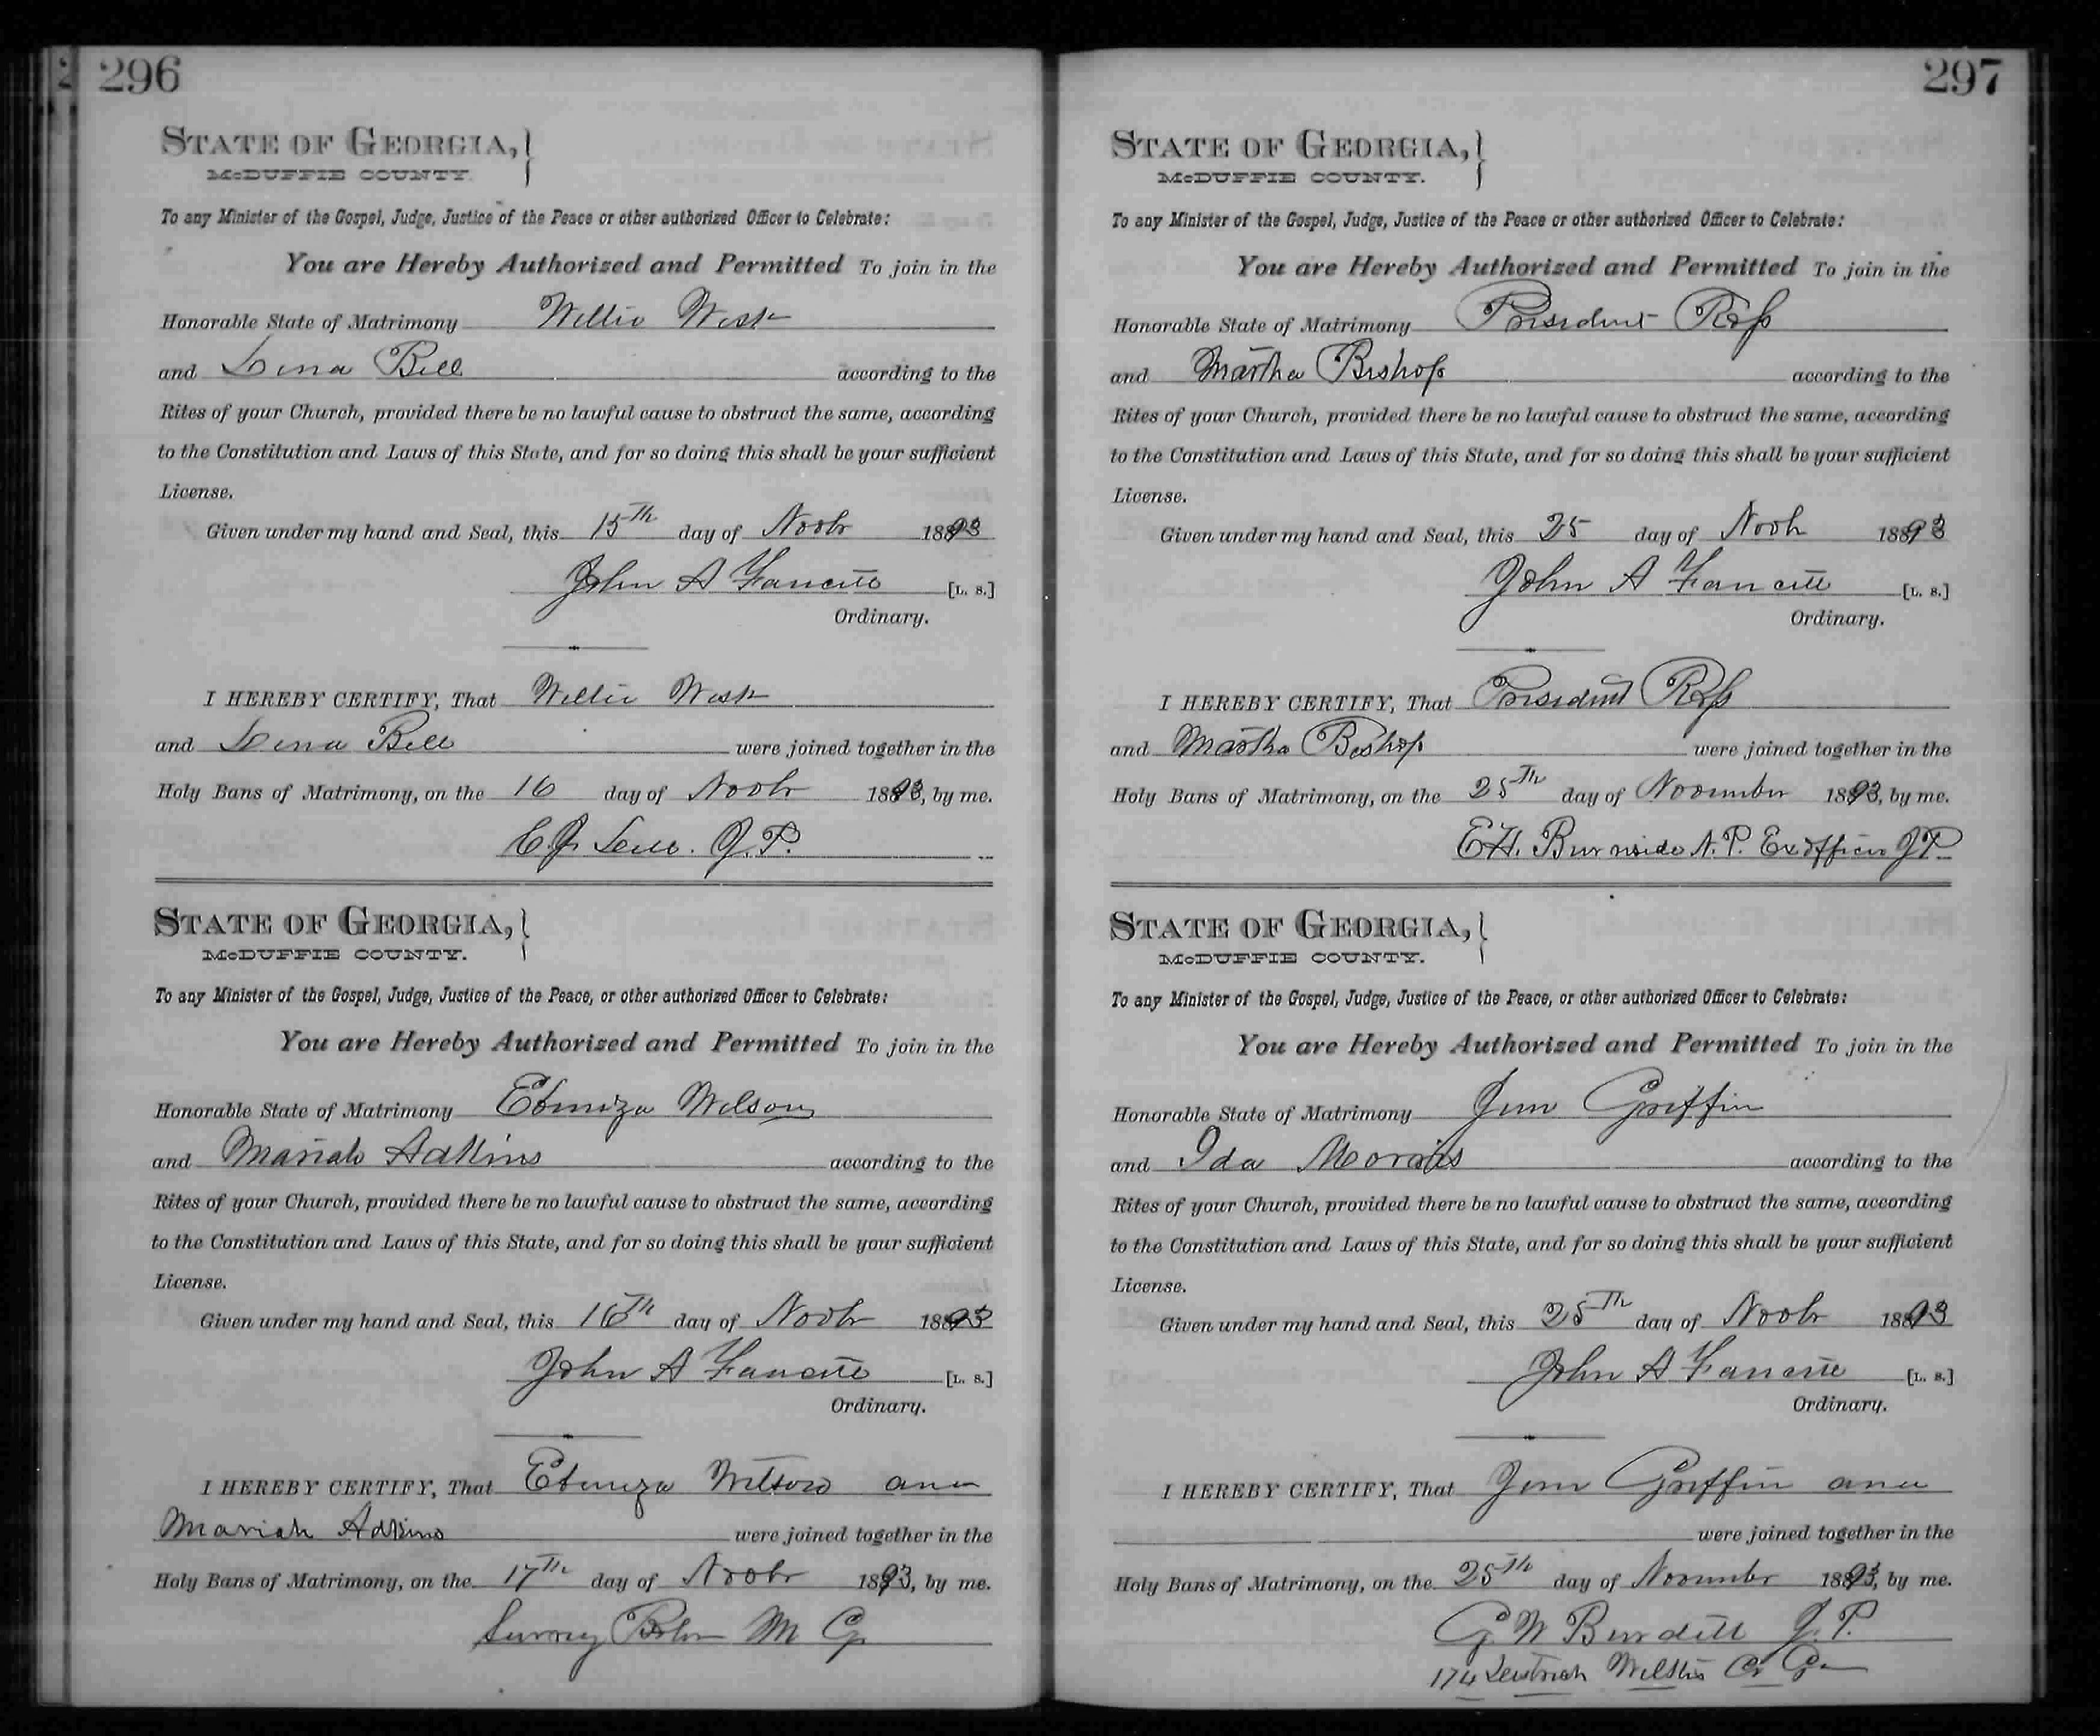 296
STATE OF GEORGIA,
McDUFFIE COUNTY.
To any Minister of the Gospel, Judge, Justice of the Peace or other authorized Officer to Celebrate:
You are Hereby Authorized and Permitted To join in the
Honorable State of Matrimony Willie West
and Lena Bell according to the
Rites of your Church, provided there be no lawful cause to obstruct the same, according
to the Constitution and Laws of this State, and for so doing this shall be your sufficient
License.
Given under my hand and Seal, this 15th day of Novbr 1893
John A [L. S.]
Ordinary.
I HEREBY CERTIFY, That Willie West
and Lena Bell were joined together in the
Holy Bans of Matrimony, on the 16 day of Novbr 1893, by me.
J.P.
STATE OF GEORGIA,
McDUFFIE COUNTY.
To any Minister of the Gospel, Judge, Justice of the Peace, or other authorized Officer to Celebrate:
You are Hereby Authorized and Permitted To join in the
Honorable State of Matrimony Ebeniza Wilson
and Mariah Adkins according to the
Rites of your Church, provided there be no lawful cause to obstruct the same, according
to the Constitution and Laws of this State, and for so doing this shall be your sufficient
License.
Given under my hand and Seal, this 16th day of Novbr 1893
John A [L. S.]
Ordinary.
I HEREBY CERTIFY, That Ebeniza Wilson and
Mariah Adkins were joined together in the
Holy Bans of Matrimony, on the 17th day of Novbr 1893, by me.
M G
297
STATE OF GEORGIA,
McDUFFIE COUNTY.
To any Minister of the Gospel, Judge, Justice of the Peace or other authorized Officer to Celebrate:
You are Hereby Authorized and Permitted To join in the
Honorable State of Matrimony President Ross
and Martha Bishop according to the
Rites of your Church, provided there be no lawful cause to obstruct the same, according
to the Constitution and Laws of this State, and for so doing this shall be your sufficient
License.
Given under my hand and Seal, this 25 day of Novbr 1893
John A [L. S.]
Ordinary.
I HEREBY CERTIFY, That President Ross
and Martha Bishop were joined together in the
Holy Bans of Matrimony, on the 25th day of November 1893, by me.
E.H. Burnside N.P. Ex officio J P
STATE OF GEORGIA,
McDUFFIE COUNTY.
To any Minister of the Gospel, Judge, Justice of the Peace, or other authorized Officer to Celebrate:
You are Hereby Authorized and Permitted To join in the
Honorable State of Matrimony Jim Griffin
and Ida according to the
Rites of your Church, provided there be no lawful cause to obstruct the same, according
to the Constitution and Laws of this State, and for so doing this shall be your sufficient
License.
Given under my hand and Seal, this 25th day of Novbr 1893
John A [L. S.]
Ordinary.
I HEREBY CERTIFY, That Jim Griffin and
were joined together in the
Holy Bans of Matrimony, on the 25th day of November 1893, by me.
G W Burdett J.P.
174 Co Ga